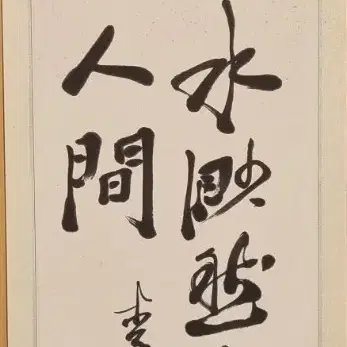 水渺然
人間